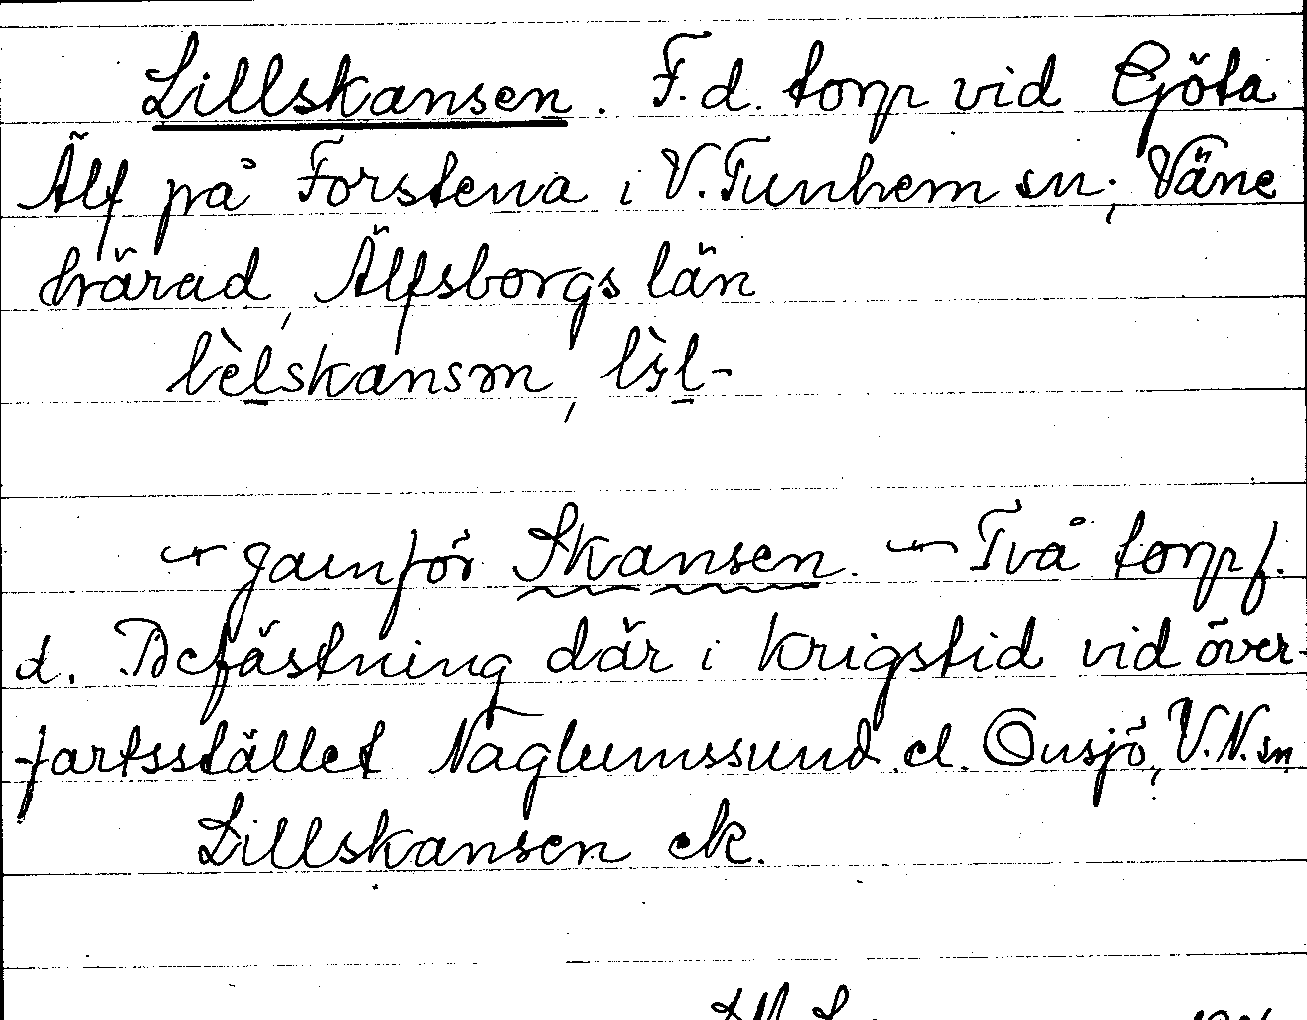 Lillskansen. F.d. torp vid Göta
Älf på Forstena i V. Tunhem sn; Väne
härad, Älfsborgs län
lèlskansm, lìl-
— jämför Skansen. — Två torp f.
d. Befästning där i krigstid vid över-
fartsstället Naglumssund el. Onsjö, V.N. sn
Lillskansen ek.